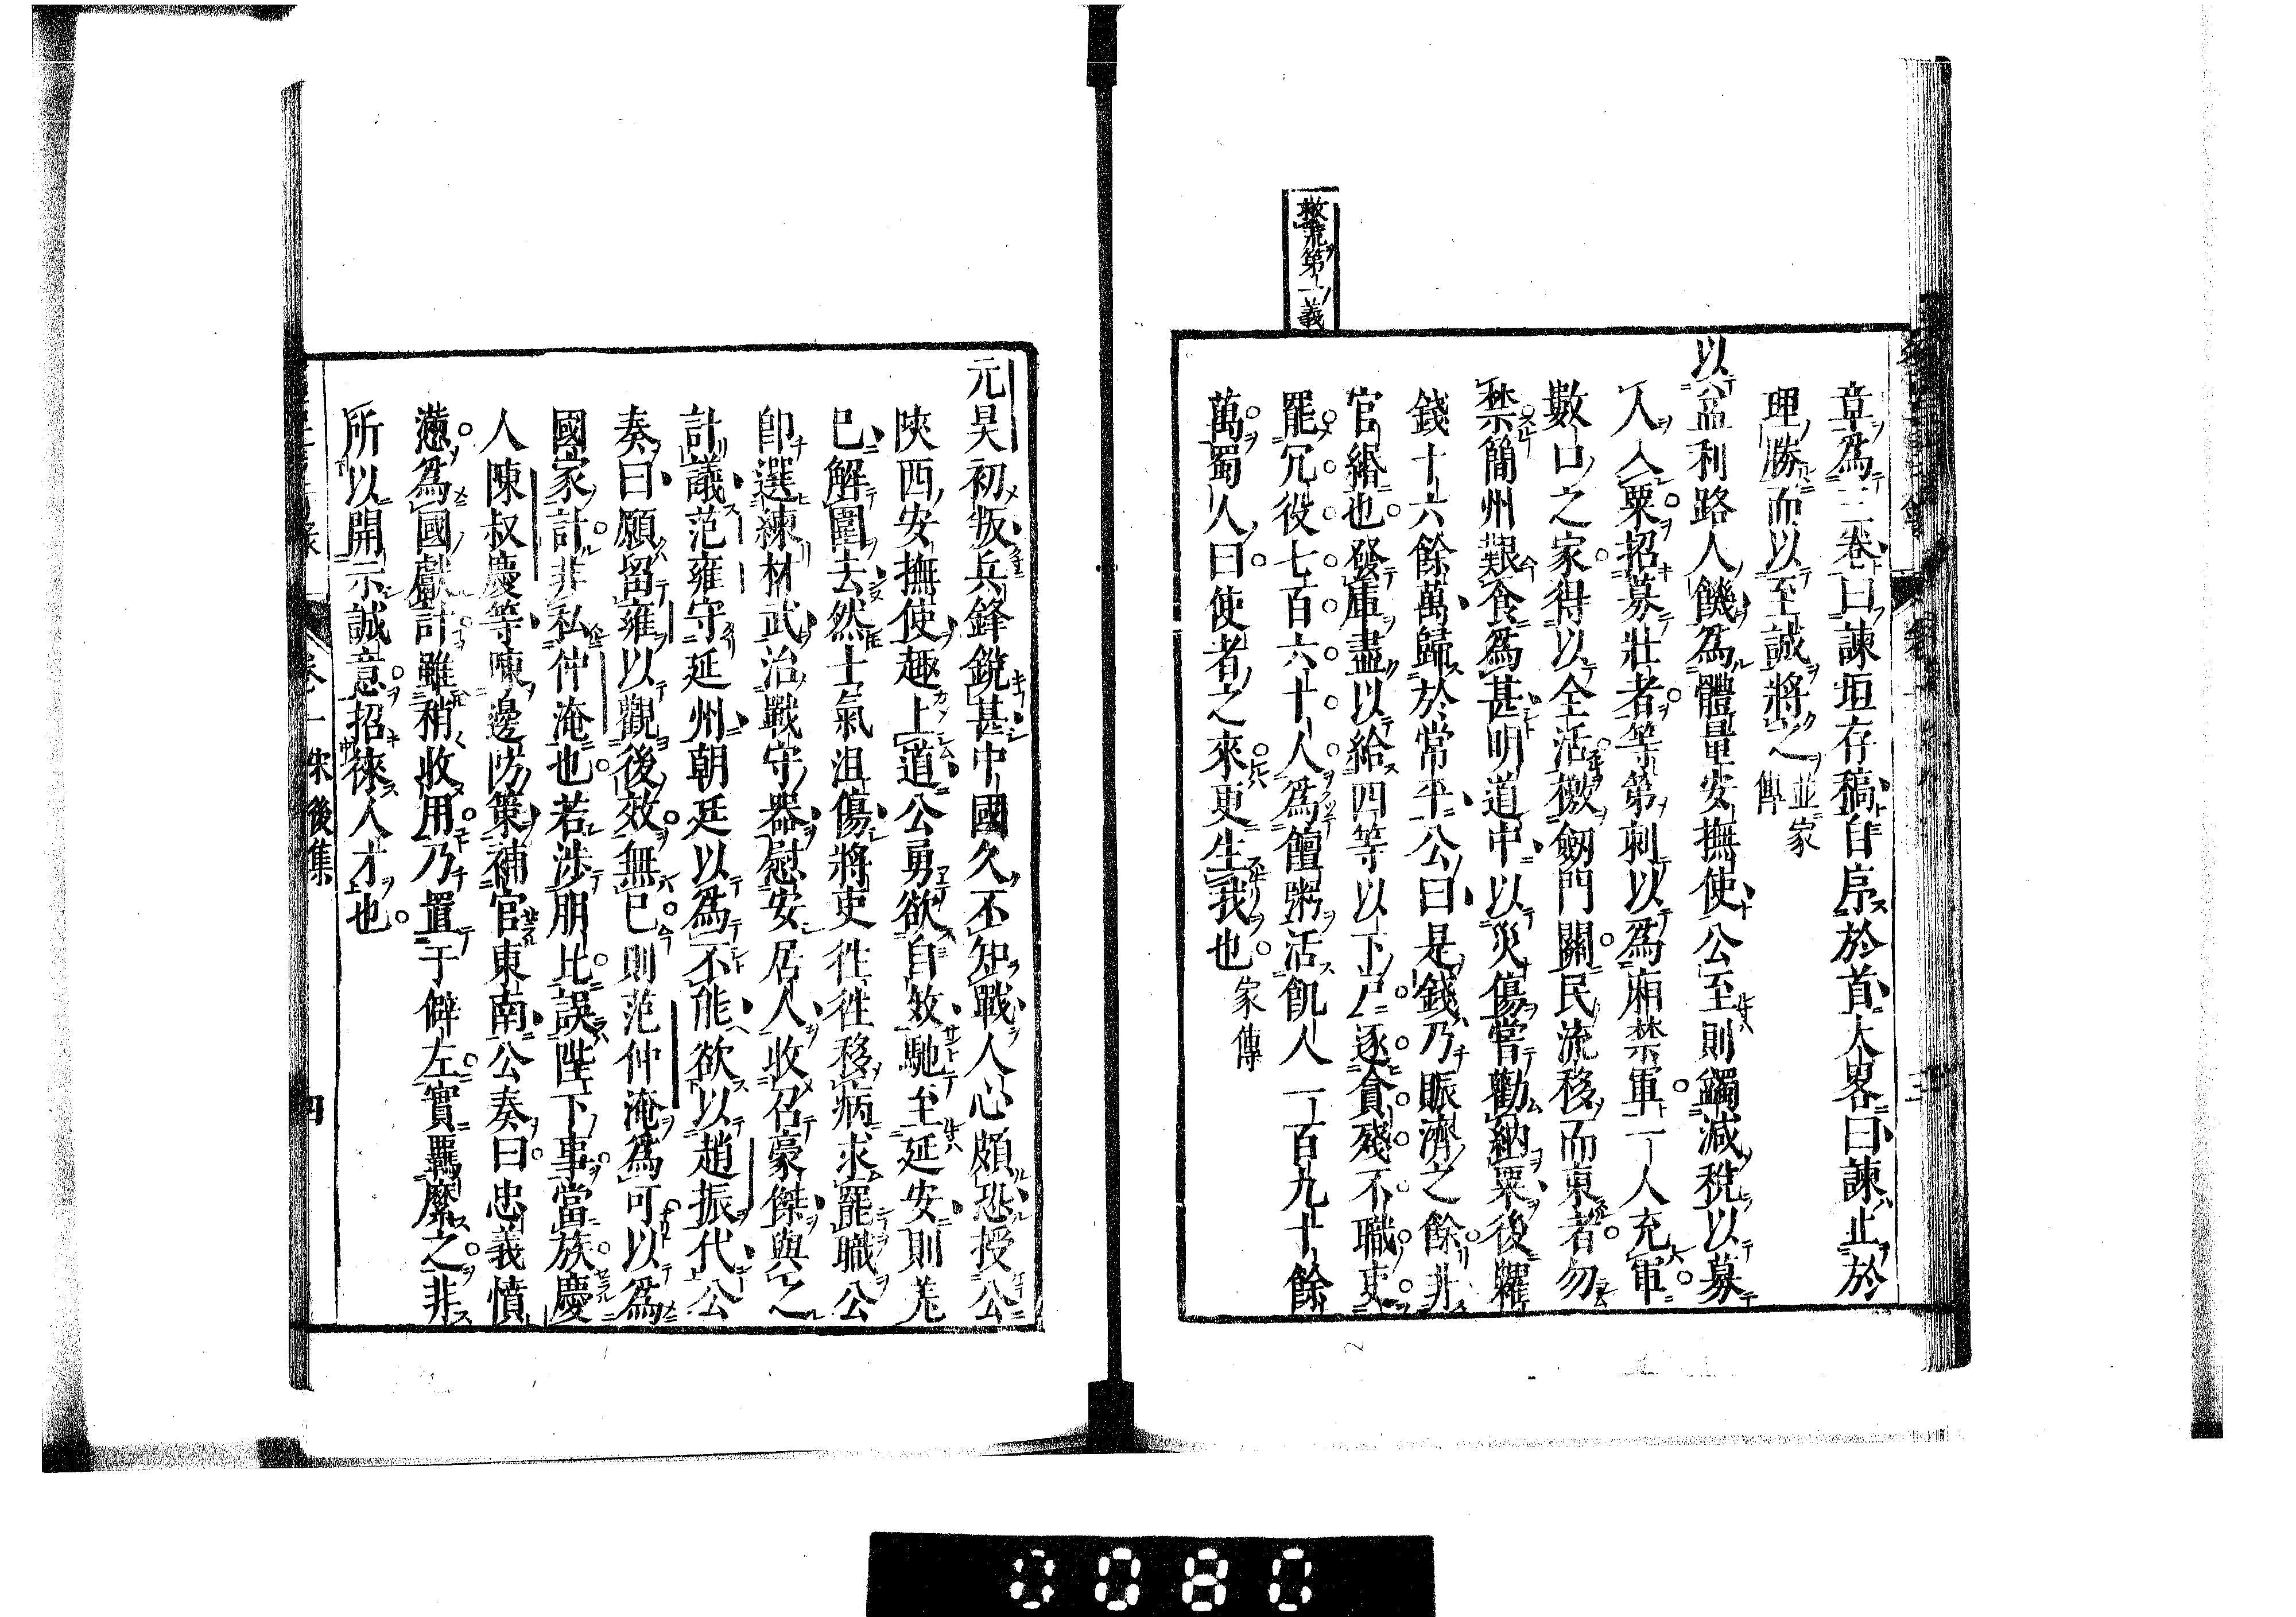 救荒第一義
章為三卷曰諫垣存稿自序於首大畧曰諫止於
理勝而以至誠將之並家傳
以益利路人饑為體量安撫使公至則蠲減稅以募
人入粟招募壯者等第刺以為廂禁軍一人充軍
數口之家得以全活檄劔門關民流移而東者勿
禁簡州艱食為甚明道中以災傷嘗勸納粟後糶
錢十六餘萬歸於常平公曰是錢乃賑濟之餘非
官緡也發庫盡以給四等以下戶逐貪殘不職吏
罷冗役七百六十人為饘粥活飢人一百九十餘
萬蜀人曰使者之來更生我也家傳
元昊初叛兵鋒銳甚中國久不知戰人心頗恐授公
陝西安撫使趣上道公勇欲自效馳至延安則羌
已解圍去然士氣沮傷將吏徃徃移病求罷職公
卽選練材武治戰守器慰安居人收召豪傑與之
計議范雍守延州朝廷以為不能欲以趙振代公
奏曰願留雍以觀後效無已則范仲淹為可以為
國家計非私仲淹也若涉朋比誤陛下事當族慶
人陳叔慶等陳邊防策補官東南公奏曰忠義憤
懣為國獻計雖稍收用乃置于僻左實羈縻之非
所以開示誠意招徠人才也
卷一 宋後集 四
0080